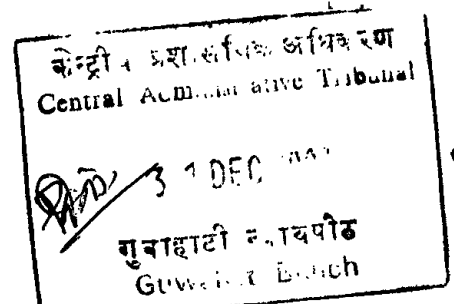 केन्द्रीय प्रशासनिक अधिकरण
Central Administrative Tribunal
31 DEC
गुवाहाटी न्यायपीठ
Guwahati Bench